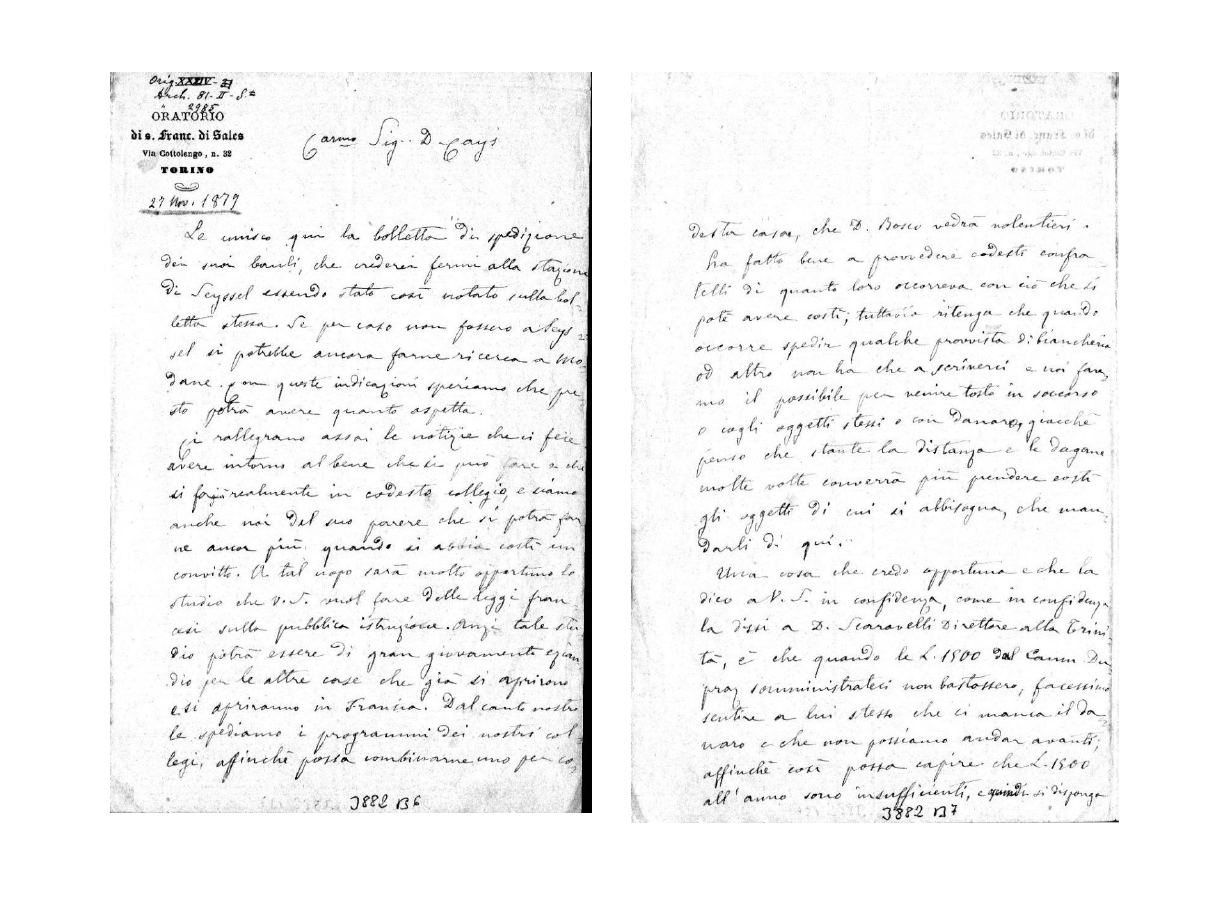 Orig. XXXIV - 31
Arch. 81-II-S.
2985
ORATORIO
di s. Franc. di Sales
Via Cottolengo, n. 32
TORINO
27 Nov. 1879
Carmo Sig. D. Cays
Le unisco qui la bolletta di spedizione
dei suoi bauli, che crederei fermi alla stazione
di Seyssel essendo stato così notato sulla bol-
letta stessa. Se per caso non fossero a Seys-
sel si potrebbe ancora farne ricerca a Mo-
dane. Con queste indicazioni speriamo che pre
sto potrà avere quanto aspetta.
Ci rallegrano assai le notizie che ci fece
avere intorno al bene che si può fare e che
si fa realmente in codesto collegio, e siamo
anche noi del suo parere che si potrà far
ne ancor più quando si abbia costì un
convitto. A tal uopo sarà molto opportuno lo
studio che V. S. vuol fare delle leggi fran-
cesi sulla pubblica istruzione. Anzi tale stu-
dio potrà essere di gran giovamento ezian
dio per le altre case che già si aprirono
e si apriranno in Francia. Dal canto nostro
le spediamo i programmi dei nostri col-
legi, affinchè possa combinarne uno per co,
J882 B6
desta casa, che D. Bosco vedrà volentieri.
Ha fatto bene a provvedere codesti confra-
telli di quanto loro occorreva con ciò che si
potè avere costì; tuttavia ritenga che quando
occorre spedir qualche provvista di biancheria
od altro non ha che a scriverci e noi fare,
mo il possibile per venire tosto in soccorso
o cogli oggetti stessi o con danaro, giacchè
penso che stante la distanza e le dogane
molte volte converrà più prendere costì
gli oggetti di cui si abbisogna, che man-
darli di qui.
Una cosa che credo opportuna e che la
dico a V. S. in confidenza, come in confidenza
la dissi a D. Scaravelli Direttore alla Trini-
tà, è che quando le L. 1500 dal Canon Du
praz somministrateci non bastassero, facessimo
sentire a lui stesso che ci manca il da-
naro e che non possiamo andar avanti;
affinchè così possa capire che L. 1500
all'anno sono insufficienti, e quindi si disponga
3882 B7